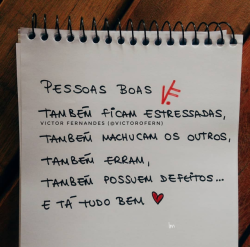 PESSOAS BOAS V.F.
TAMBÉM FICAM ESTRESSADAS,
VICTOR FERNANDES (@VICTOROFERN)
TAMBÉM MACHUCAM OS OUTROS,
TAMBÉM ERRAM,
TAMBÉM POSSUEM DEFEITOS...
E TÁ TUDO BEM